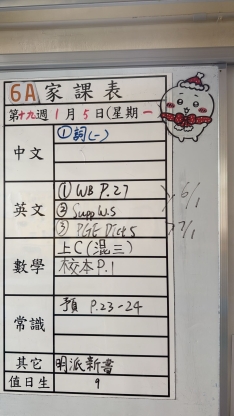 6A 家課表
第十九週 1月5日(星期一)
中文
①詞(一)
英文
① WB P.27
② Supp W.S
6/1
③ PGE Dict 5
7/1
數學
上C(混三)
校本P.1
常識
預 P.23-24
其它
明派新書
值日生
9